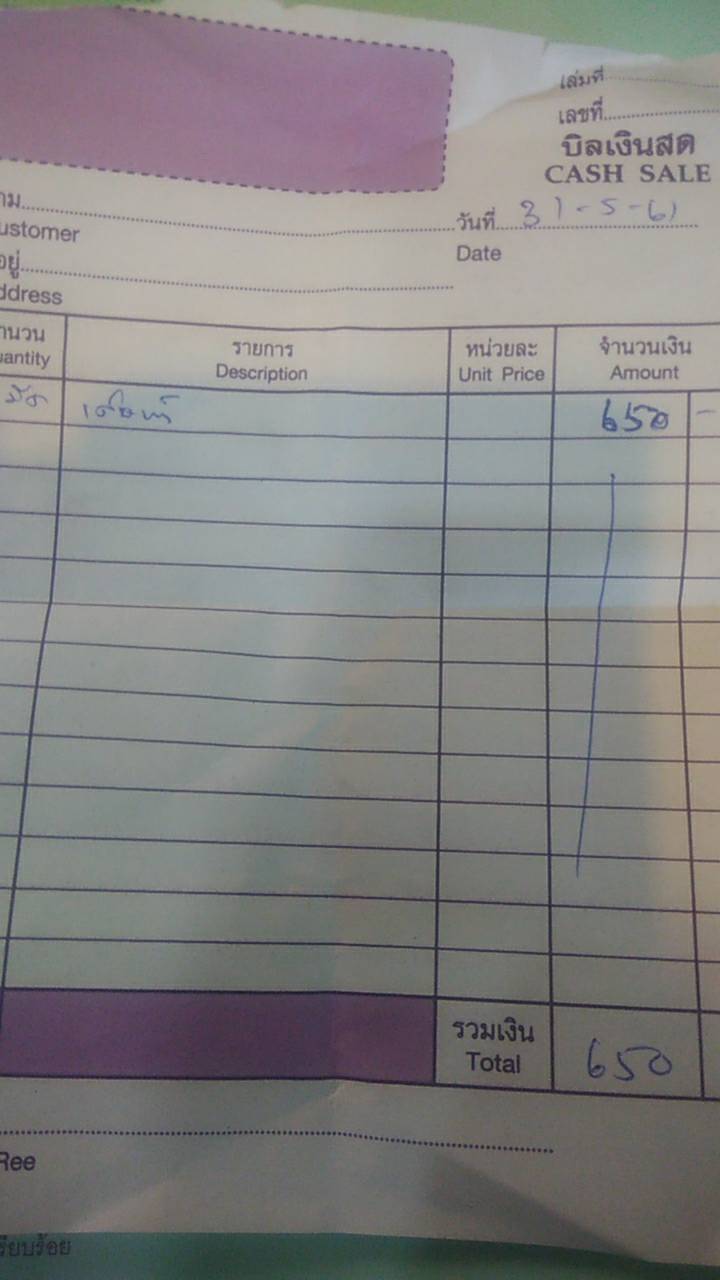 เล่มที่
เลขที่
บิลเงินสด
CASH SALE
าม
ustomer
วันที่ 31-5-61
Date
อยู่
ddress
านวน
uantity
รายการ
Description
หน่วยละ
Unit Price
จำนวนเงิน
Amount
650 -
รวมเงิน
Total
650
Ree
รียบร้อย